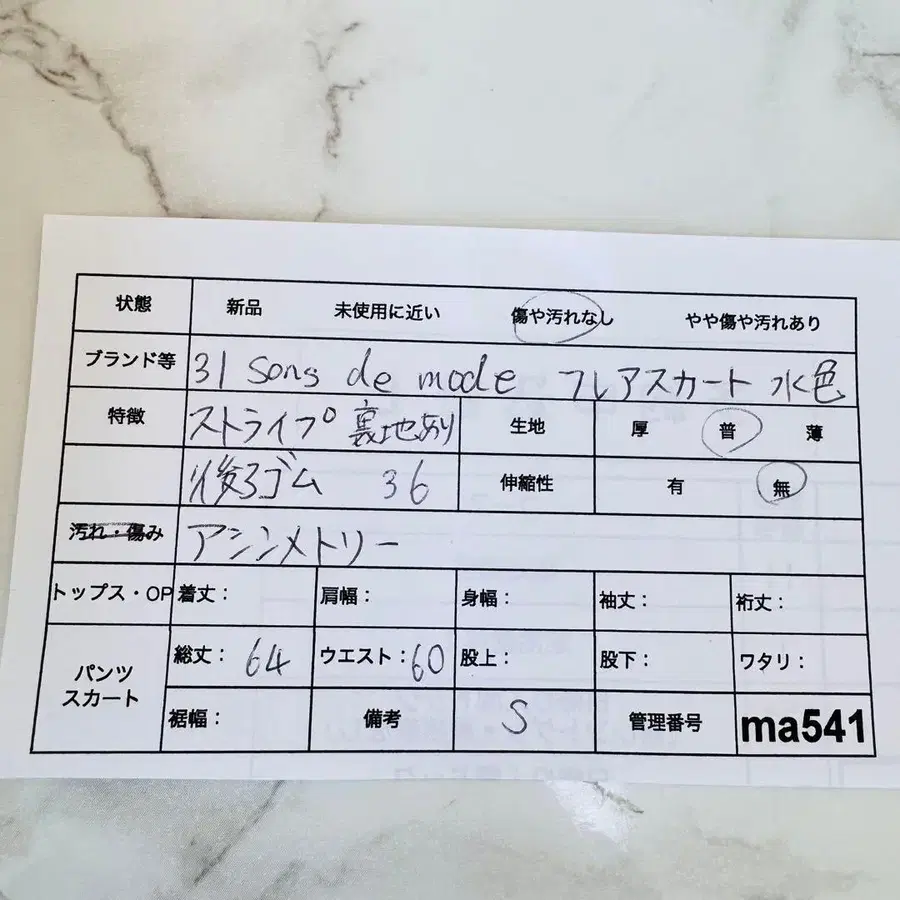 状態 新品 未使用に近い 傷や汚れなし やや傷や汚れあり
ブランド等 31 Sons de mode フレアスカート 水色
特徴 ストライプ 裏地あり 生地 厚 普 薄
後ろゴム 36 伸縮性 有 無
汚れ・傷み アシンメトリー
トップス・OP 着丈: 肩幅: 身幅: 袖丈: 裄丈:
パンツ スカート 総丈: 64 ウエスト:60 股上: 股下: ワタリ:
裾幅: 備考 S 管理番号 ma541